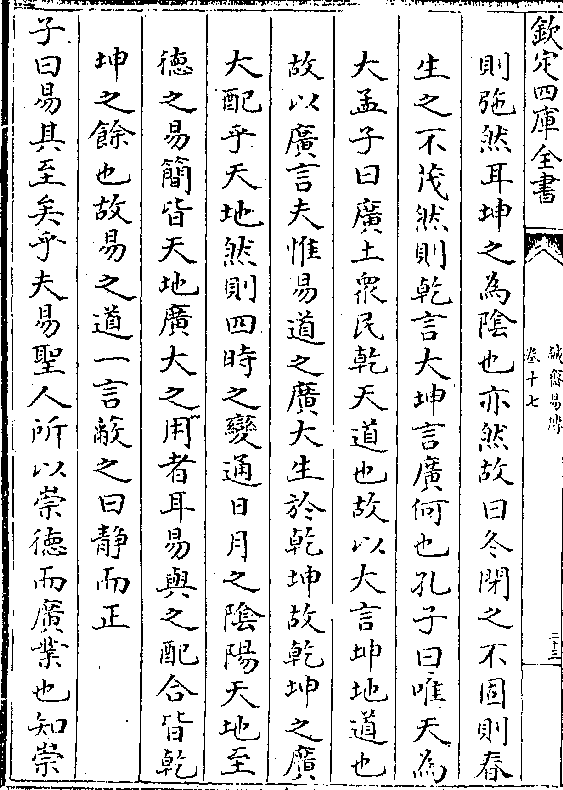 欽定四庫全書
誠齋易傳
卷十七
二十三
則弛然耳坤之為陰也亦然故曰冬閉之不固則春
生之不茂然則乾言大坤言廣何也孔子曰唯天為
大孟子曰廣土衆民乾天道也故以大言坤地道也
故以廣言夫惟易道之廣大生於乾坤故乾坤之廣
大配乎天地然則四時之變通日月之陰陽天地至
德之易簡皆天地廣大之用者耳易與之配合皆乾
坤之餘也故易之道一言蔽之曰靜而正
子曰易其至矣乎夫易聖人所以崇德而廣業也知崇